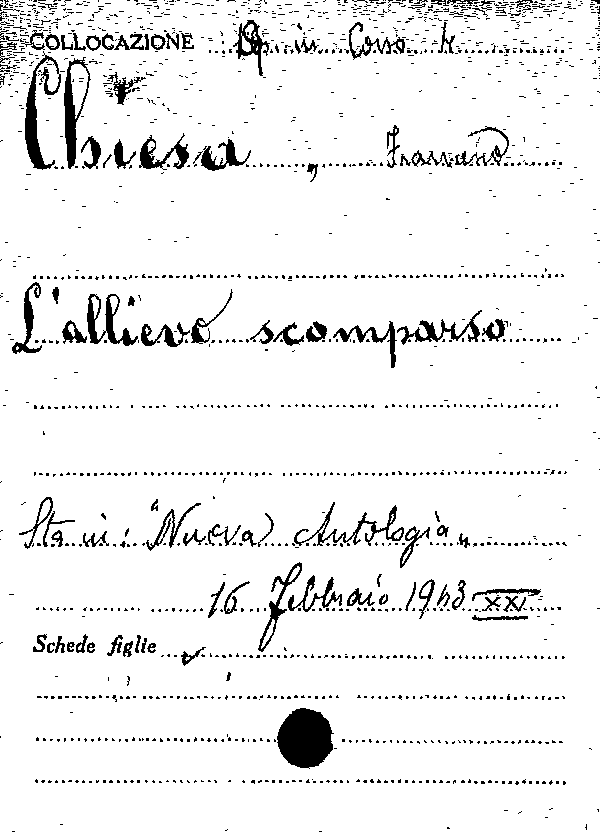 COLLOCAZIONE Op. in Corso
Chiesa,
L'allievo scomparso
Sta in: "Nuova Antologia"
16 Febbraio 1943 XXI
Schede figlie